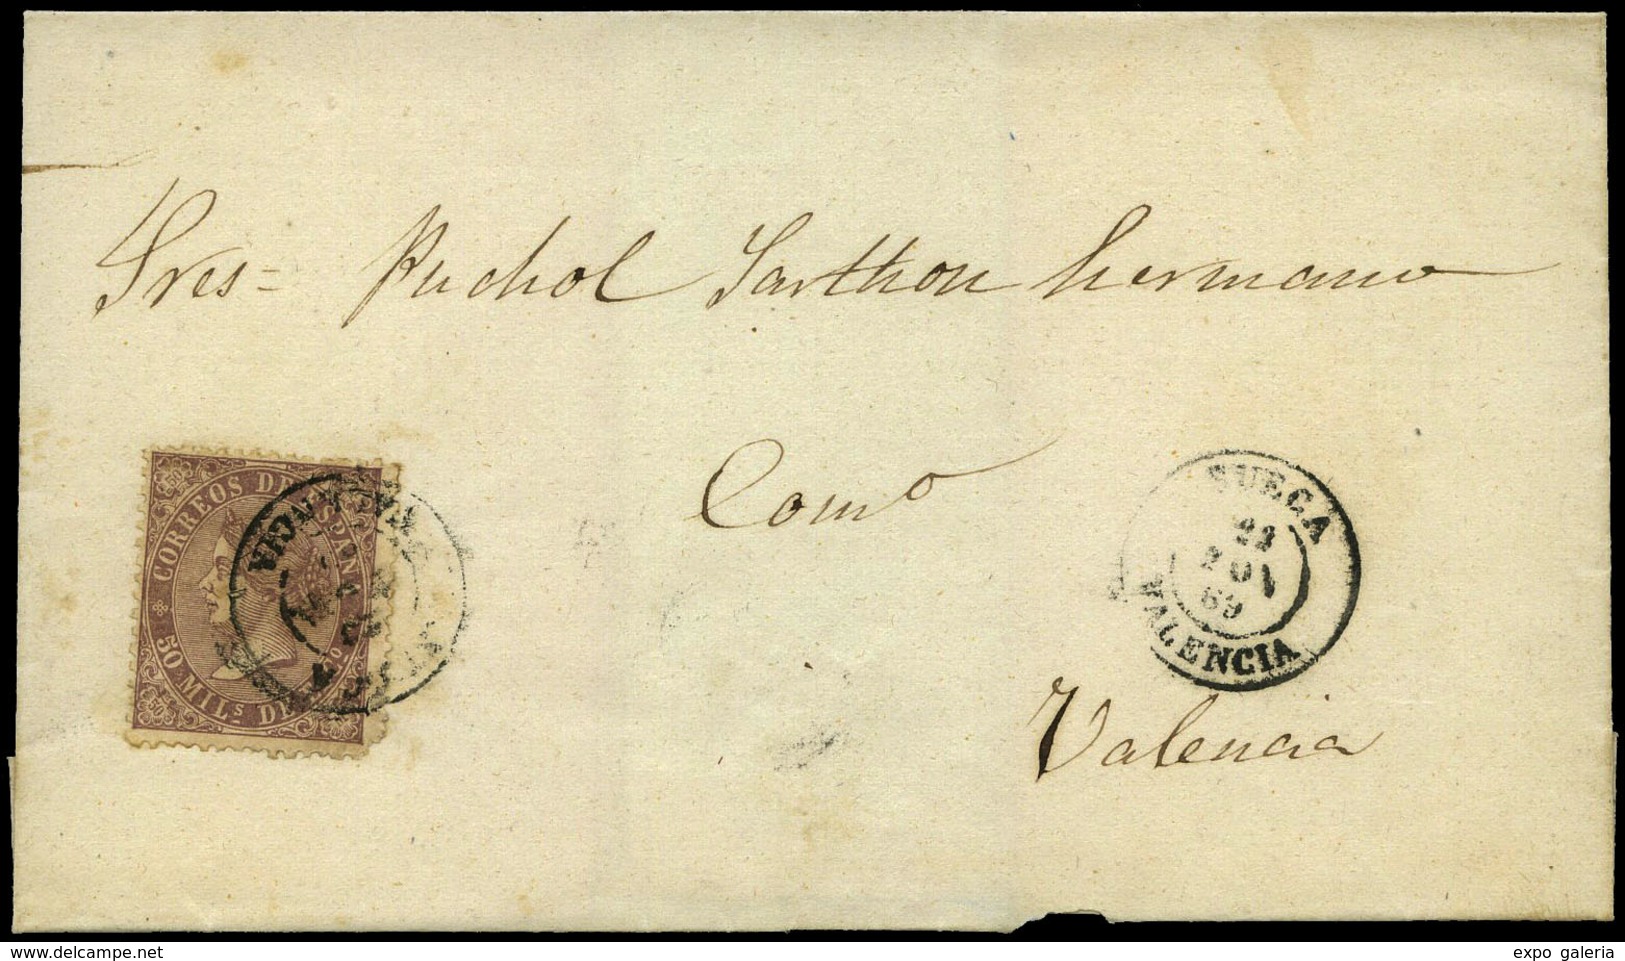 Sres= Puchol Sarthou hermano
Comº
CORREOS DE ESPAÑA
50 MILS DE
SUECA
NOV
69
VALENCIA
Valencia
delcampe.net
expo galeria